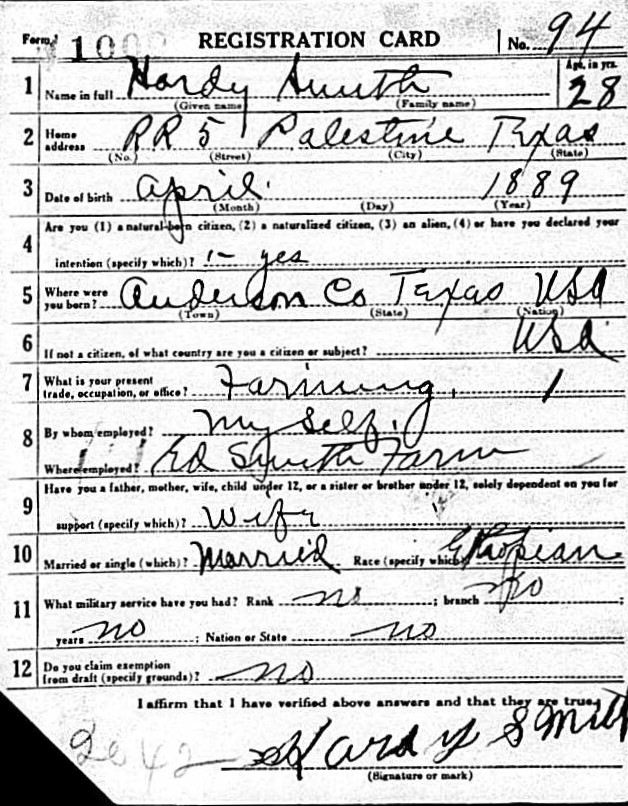 Form 1 100 REGISTRATION CARD No. 94
1 Name in full Hardy Smith Age, in yrs. 28
(Given name) (Family name)
2 Home address RR 5 Palestine Texas
(No.) (Street) (City) (State)
3 Date of birth April 1889
(Month) (Day) (Year)
4 Are you (1) a natural-born citizen, (2) a naturalized citizen, (3) an alien, (4) or have you declared your
intention (specify which)? 1- yes
5 Where were you born? Anderson Co Texas USA
(Town) (State) (Nation)
6 If not a citizen, of what country are you a citizen or subject? USA
7 What is your present trade, occupation, or office? Farming. 1
8 By whom employed? My Self.
Where employed? Ed Smith Farm
9 Have you a father, mother, wife, child under 12, or a sister or brother under 12, solely dependent on you for
support (specify which)? Wife
10 Married or single (which)? Married Race (specify which) Ethiopian
11 What military service have you had? Rank no ; branch no ;
years no ; Nation or State no
12 Do you claim exemption from draft (specify grounds)? no
I affirm that I have verified above answers and that they are true.
2642 Hardy Smith
(Signature or mark)